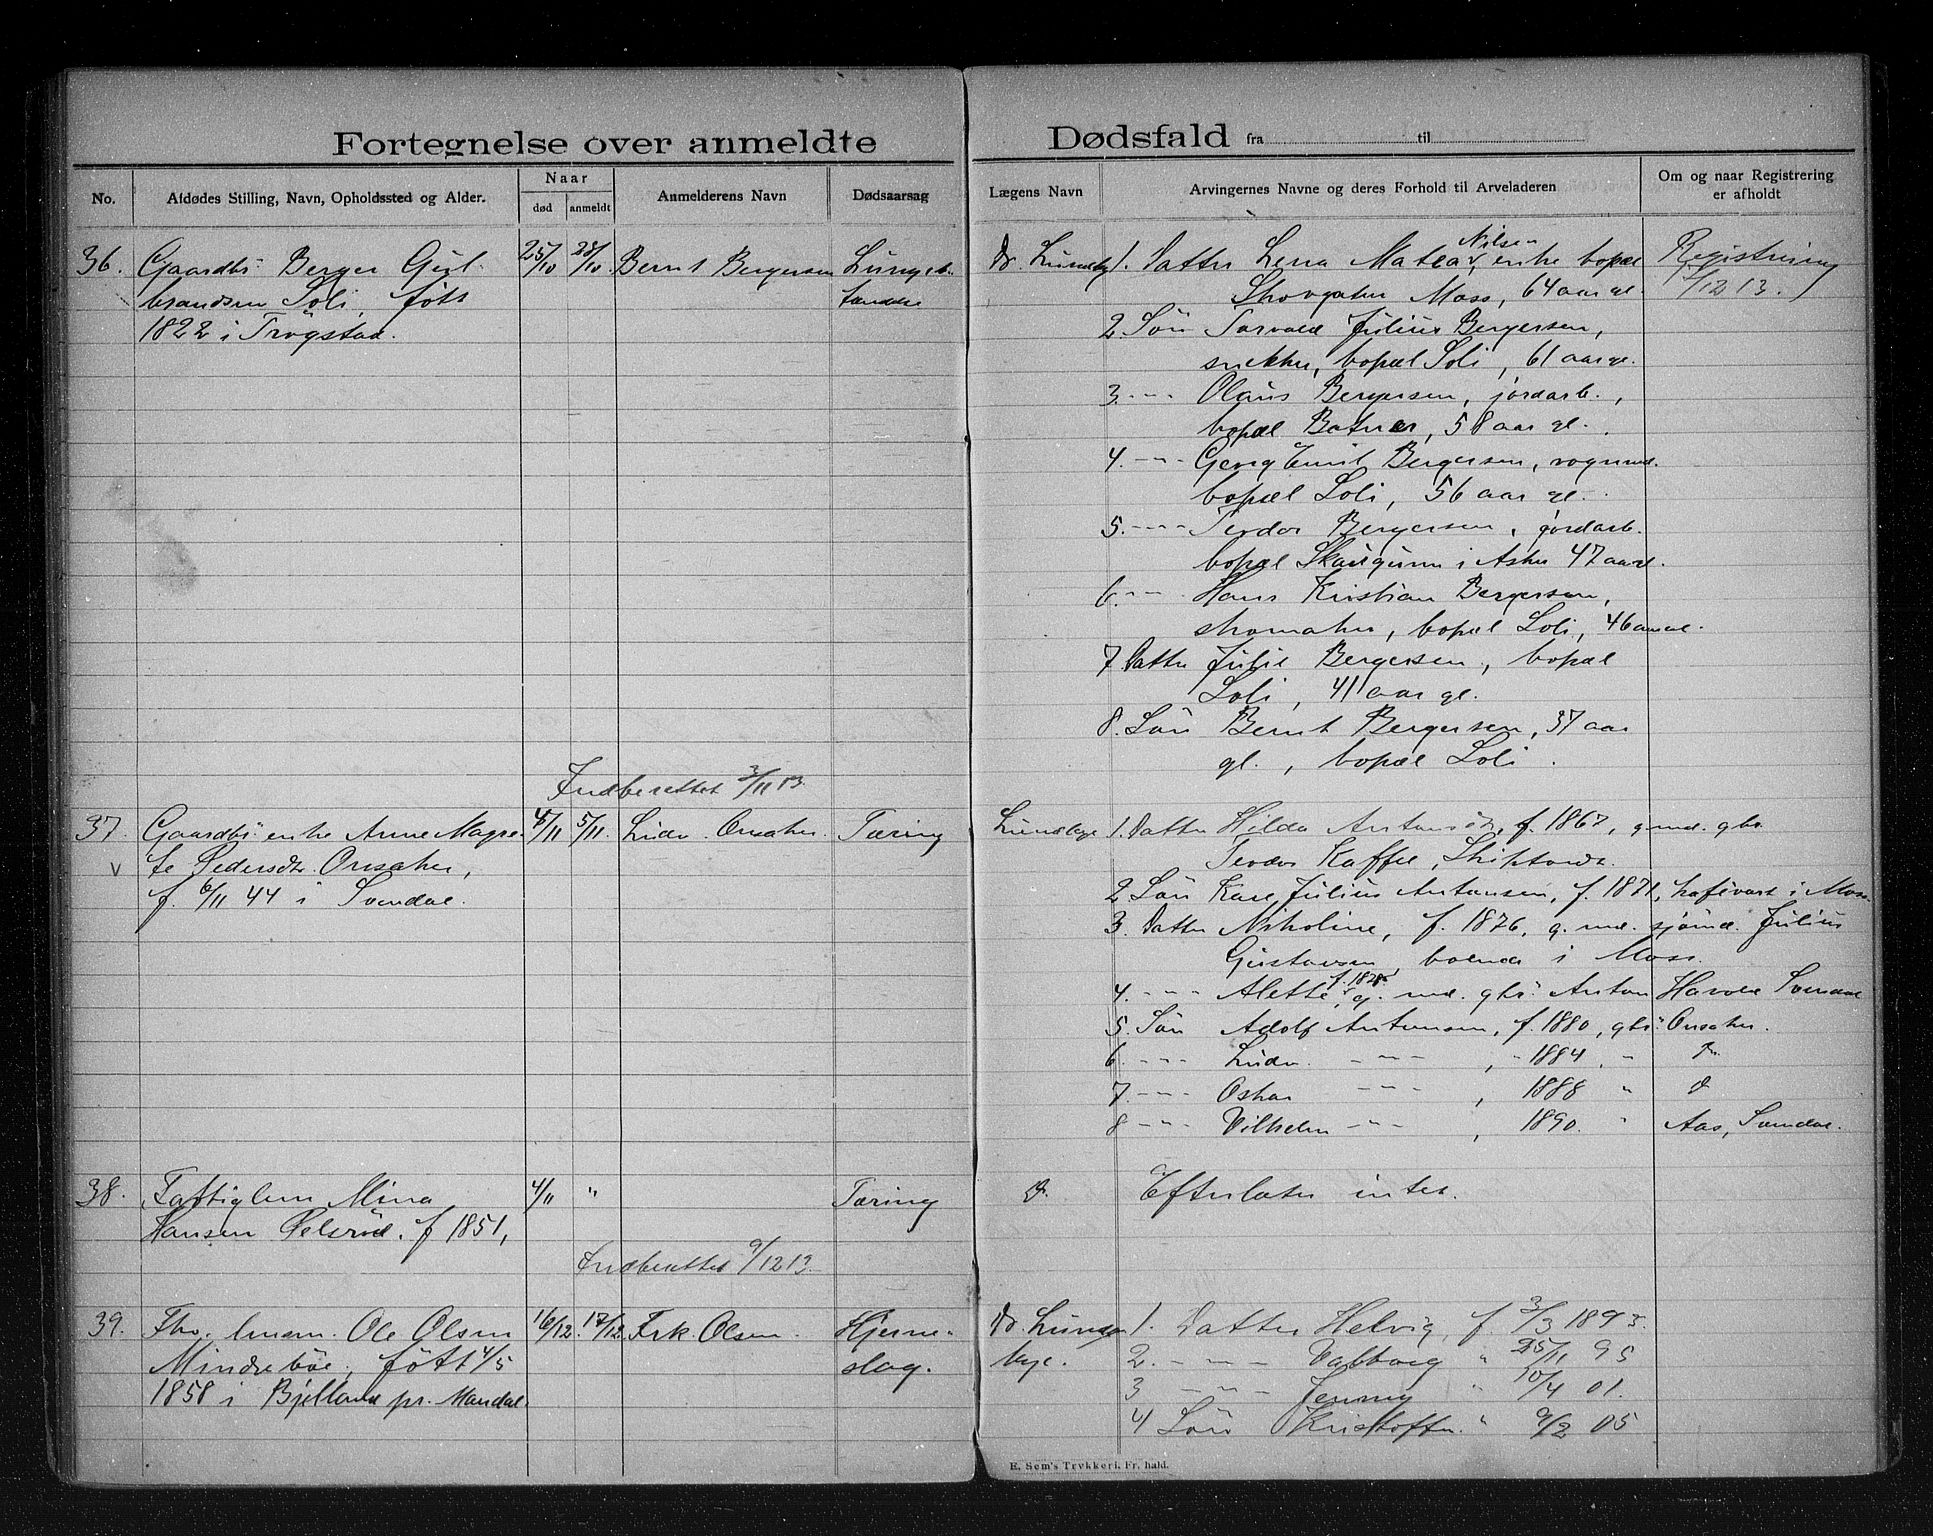 Fortegnelse over anmeldte
No.
Afdødes Stilling, Navn, Opholdssted og Alder.
Naar
død
anmeldt
Anmelderens Navn
Dødsaarsag
36.
Gaardbr. Berger Gul-
brandsen Soli, født
1822 i Trøgstad.
25/10
28/10
Bernt Bergersen
Lungebe-
tændelse
Indberettet 3/11 13.
37.
Gaardbr. enke Anne Magre-
te Pedersdtr. Onsaker,
f. 6/11 44 i Svindal.
4/11
5/11
Ludv. Onsaker.
Tæring
38.
Fattiglem Mina
Hansen Pelsrud. f 1851,
4/11
"
Tæring
Indberettet 9/12 13.
39.
Fhv. lensm. Ole Olsen
Mindrebøe, født 4/5
1858 i Bjelland pr. Mandal.
16/12.
17/12
Frk. Olsen.
Hjerne-
slag.
Dødsfald fra til
Lægens Navn
Arvingernes Navne og deres Forhold til Arveladeren
Om og naar Registrering er afholdt
Dr. Lundby
1. Datter Lena Matea Nilsen, enke bopæl
Skovgaten Moss, 64 aar gl.
Registrering
/12 13.
2. Søn Torvald Julius Bergersen,
snekker, bopæl Soli, 61 aar gl.
3. -"- Olaus Bergersen, jordarb.,
bopæl Botner, 58 aar gl.
4. -"- Georg Emil Bergersen, vognmd.
bopæl Soli, 56 aar gl.
5. -"- Teodor Bergersen, jordarb.
bopæl Skaugum i Asker 47 aar gl.
6. -"- Hans Kristian Bergersen,
skomaker, bopæl Soli, 46 aar gl.
7. Datter Julie Bergersen, bopæl
Soli, 41 aar gl.
8. Søn Bernt Bergersen, 37 aar
gl., bopæl Soli.
1. Datter Hilda Antonsdt, f. 1867, g. md. gbr.
Teodor Kaffel, Skiptvedt.
2. Søn Karl Julius Antonsen, f. 1871, kafévært i Moss.
3. Datter Nikoline, f. 1876, g. md. sjømd. Julius
Gustavsen, boende i Moss.
4. -"- Alette, f. 1878, g. md. gbr. Anton Harold Svindal
5. Søn Adolf Antonsen, f. 1880, gbr. Onsaker.
6. -"- Ludv. -"-, " 1884, " do.
7. -"- Oskar -"-, 1888 " do
8 -"- Vilhelm -"-, 1890. " Aas, Svindal.
do.
Efterlater intet.
Dr. Lunde-
bye.
1. Datter Helvig, f. 3/3 1893.
2. -"- Valborg " 25/11 95
3 -"- Jenny " 10/4 01.
4 Søn Kristoffer. " 9/2 05
E. Sem's Trykkeri, Fr.hald.